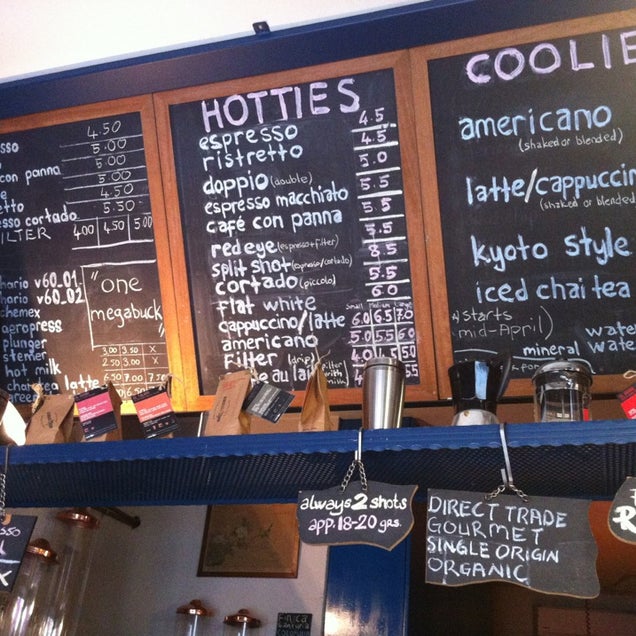 4.50
5.00
con panna 5.00
5.00
4.50
sso cortado 5.50
FILTER 4.00 4.50 5.00
hario v60.01
hario v60.02
chemex
aeropress
plunger
"one
megabuck"
3.00 3.50 X
2.50 3.00 X
hot milk
latte 6.50 7.00 7.50
HOTTIES
espresso 4.5
ristretto 4.5
doppio (double) 5.0
espresso macchiato 5.5
café con panna 5.5
red eye (espresso+filter) 5.5
split shot (espresso/cortado) 8.5
cortado (piccolo) 5.5
flat white 6.0
Small Medium Large
cappuccino/latte 6.0 6.5 7.0
americano 5.0 5.5 6.0
filter (drip) 4.0 4.5 5.0
au lait with milk 5.5
COOLIE
americano
(shaked or blended)
latte/cappuccin
(shaked or blended
kyoto style
iced chai tea
starts
mid-April)
mineral wate
wate
always 2 shots
app. 18-20 grs.
DIRECT TRADE
GOURMET
SINGLE ORIGIN
ORGANIC
FINCA